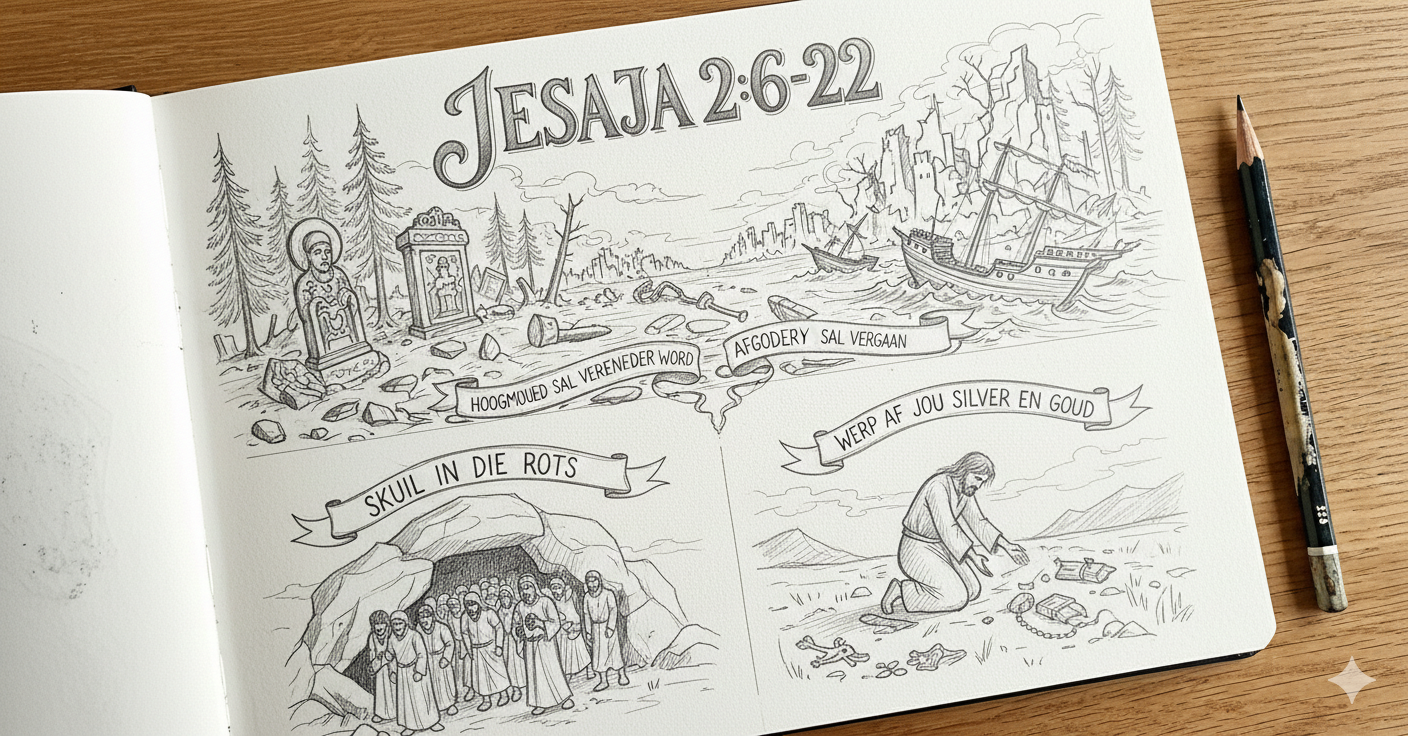 JESAJA 2:6-22
HOOGMOUED SAL VERENEDER WORD
AFGODERY SAL VERGAAN
SKUIL IN DIE ROTS
WERP AF JOU SILVER EN GOUD